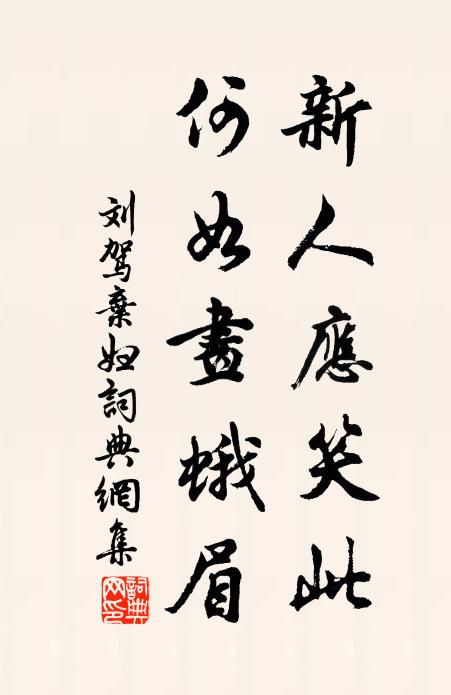 新人應笑此
何如畫蛾眉
刘驾棄妇詞典網集
詞典网印